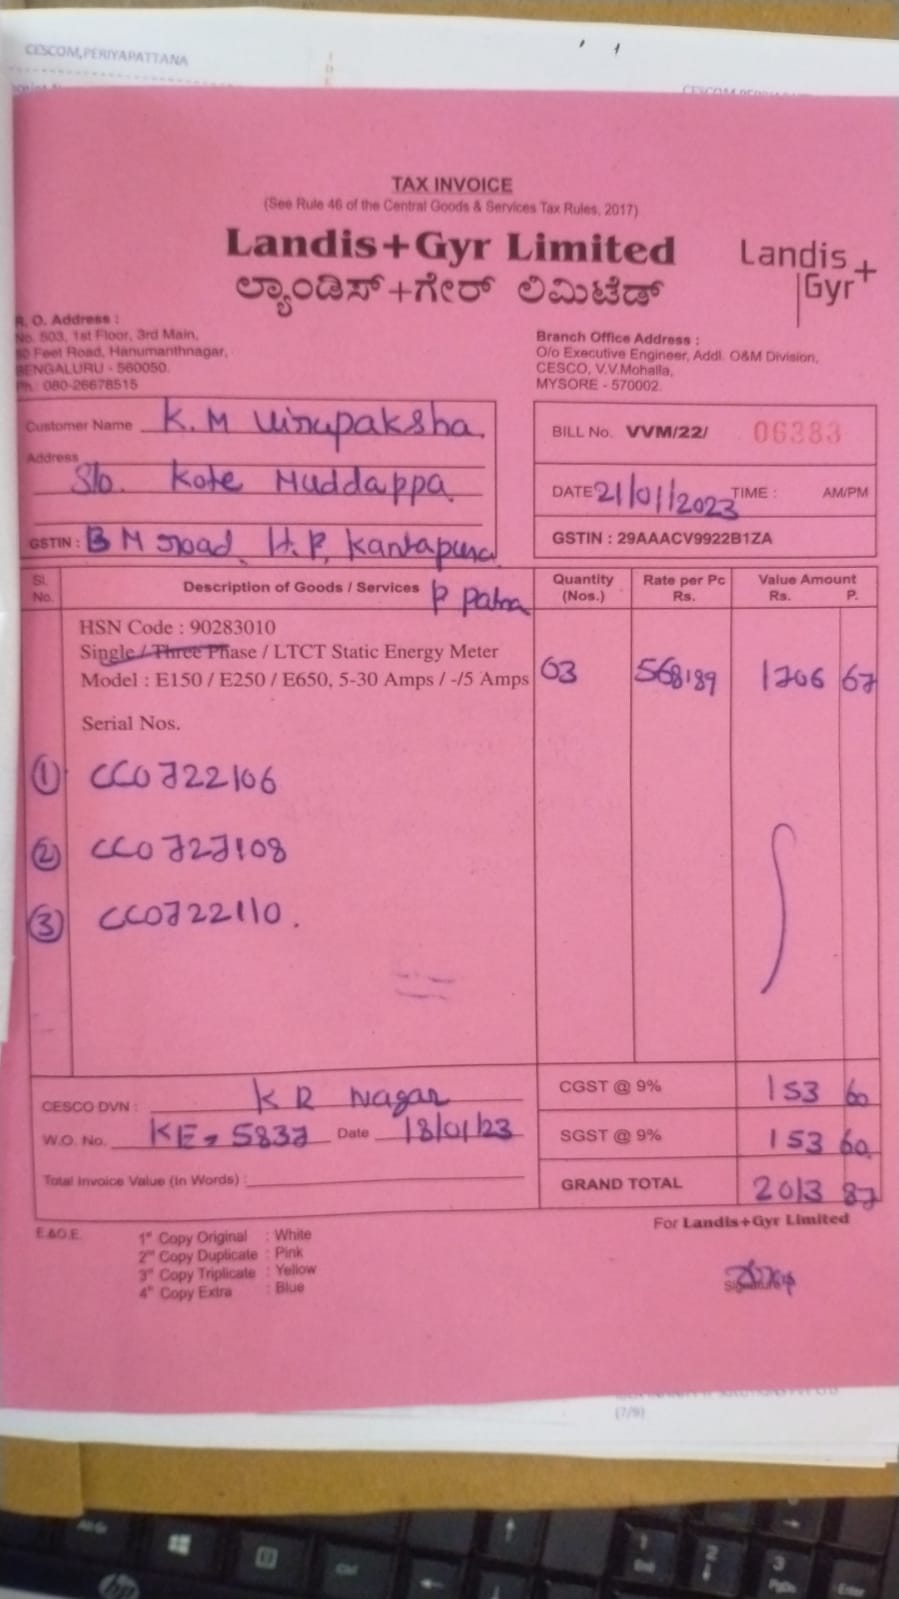 CESCOM,PERIYAPATTANA
TAX INVOICE
(See Rule 46 of the Central Goods & Services Tax Rules, 2017)
Landis+Gyr Limited
Landis
Gyr+
ಲ್ಯಾಂಡಿಸ್+ಗೇರ್ ಲಿಮಿಟೆಡ್
R. O. Address :
No. 503, 1st Floor, 3rd Main,
80 Feet Road, Hanumanthnagar,
BENGALURU - 560050.
Ph : 080-26678515
Branch Office Address :
O/o Executive Engineer, Addl. O&M Division,
CESCO, V.V.Mohalla,
MYSORE - 570002.
Customer Name K.M Virupaksha.
Address
S/o. Kote Muddappa
GSTIN : B M road, H.P, Kantapura
P Patna
BILL No. VVM/22/ 06383
DATE 21/01/2023 TIME : AM/PM
GSTIN : 29AAACV9922B1ZA
Sl. No. Description of Goods / Services Quantity (Nos.) Rate per Pc Rs. Value Amount Rs. P.
HSN Code : 90283010
Single / Three Phase / LTCT Static Energy Meter
Model : E150 / E250 / E650, 5-30 Amps / -/5 Amps 03 568.89 1706 67
Serial Nos.
1 CC0722106
2 CC0727108
3 CC0722110.
CESCO DVN : K R Nagar
W.O. No. KE-5837 Date 18/01/23
Total Invoice Value (In Words) :
CGST @ 9% 153 60
SGST @ 9% 153 60
GRAND TOTAL 2013 87
E.&O.E.
1st Copy Original : White
2nd Copy Duplicate : Pink
3rd Copy Triplicate : Yellow
4th Copy Extra : Blue
For Landis+Gyr Limited
Signature
(7/9)
Alt Gr
Ctrl
1 End
2
3 PgDn
Enter
hp